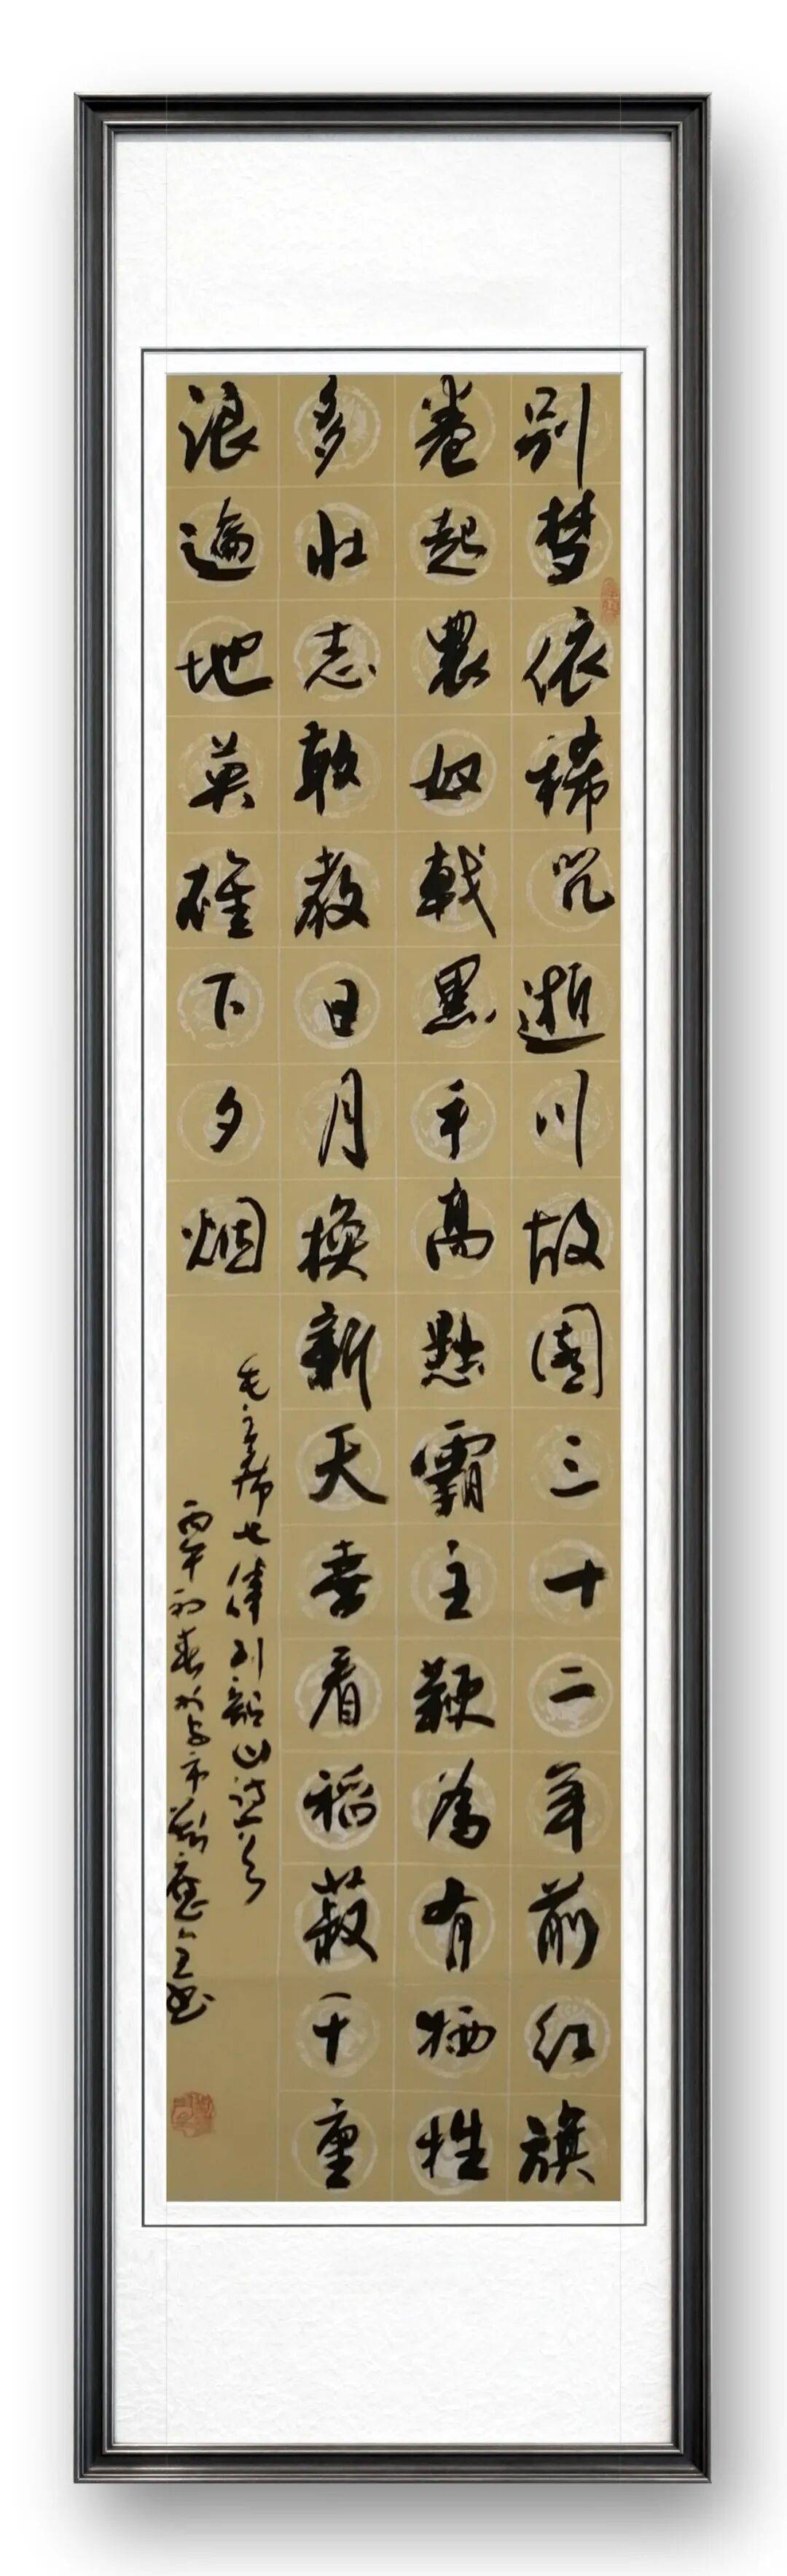 别梦依稀咒逝川故園三十二年前红旗
卷起農奴戟黑手高懸霸主鞭為有牺牲
多壮志敢教日月換新天喜看稻菽千重
浪遍地英雄下夕烟
毛主席七律到韶山诗一首
丙午初春於市應全书